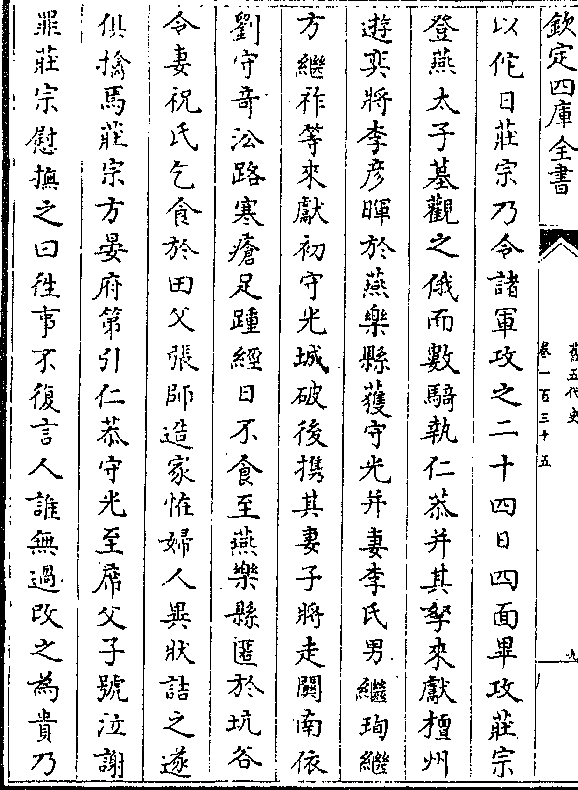 欽定四庫全書
舊五代史
卷一百三十五
九
以佗日莊宗乃令諸軍攻之二十四日四面畢攻莊宗
登燕太子墓觀之俄而數騎執仁恭并其孥來獻檀州
遊奕將李彦暉於燕樂縣獲守光并妻李氏男繼珣繼
方繼祚等來獻初守光城破後携其妻子將走關南依
劉守奇沿路寒瘡足踵經日不食至燕樂縣匿於坑谷
令妻祝氏乞食於田父張師造家怪婦人異狀詰之遂
俱擒焉莊宗方晏府第引仁恭守光至席父子號泣謝
罪莊宗慰撫之曰徃事不復言人誰無過改之為貴乃